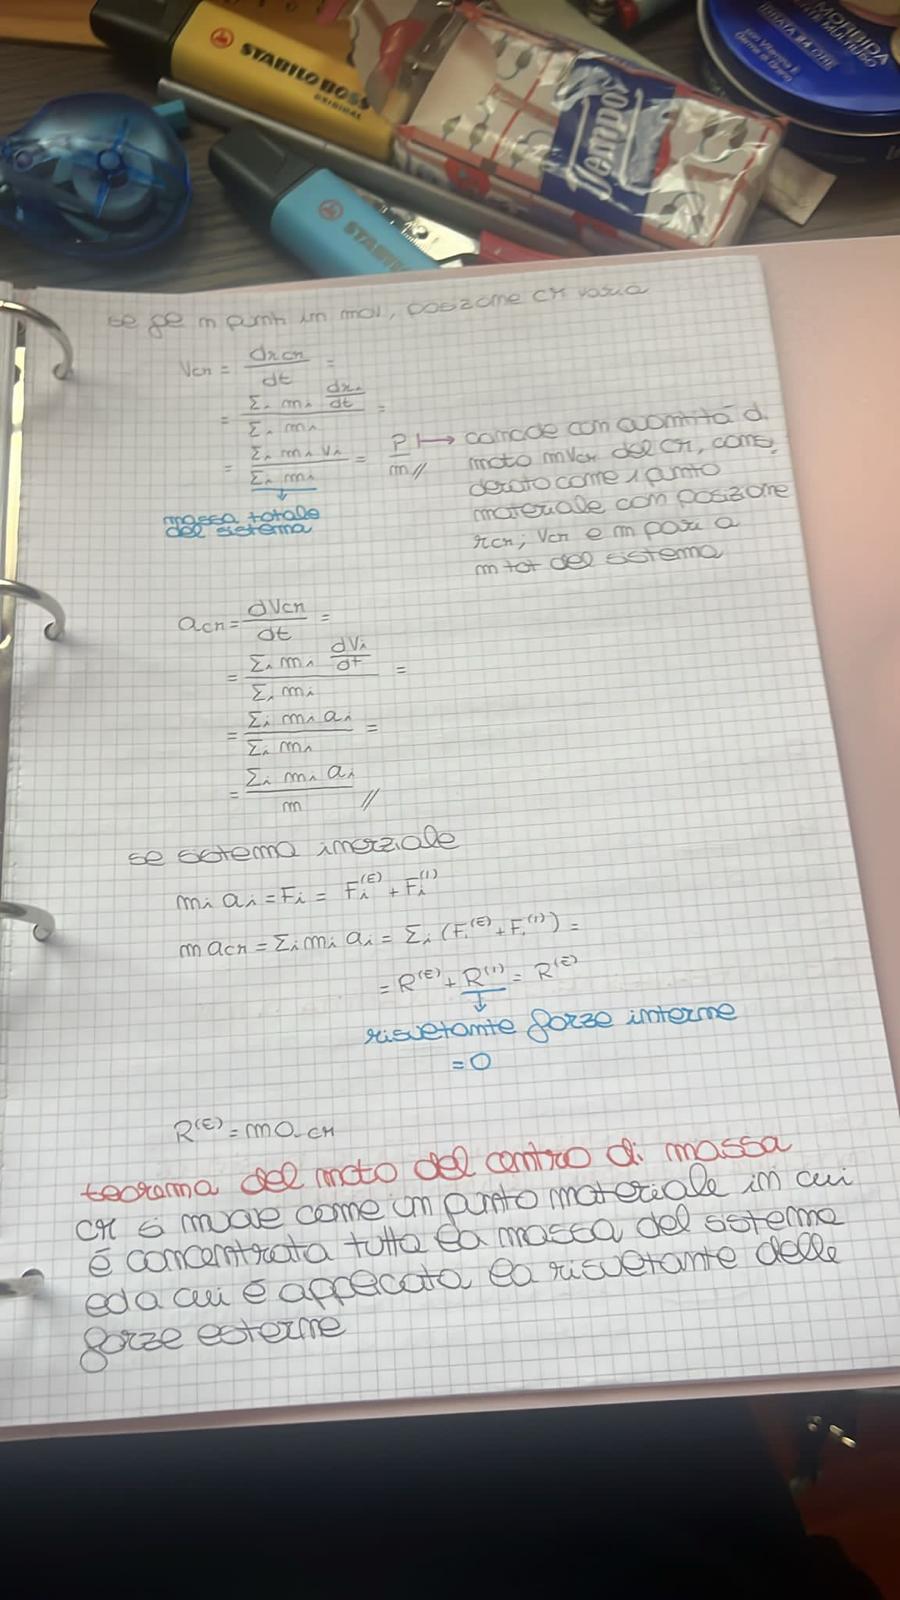 STABILO BOSS
ORIGINAL
STABIL
Tempo
MORBIDA
se gli n punti in mov, posizione CM varia
Vcm = drcm/dt =
= Σi mi dri/dt / Σi mi =
= Σi mi vi / Σi mi = P/m // ↦ coincide con quantità di
moto mVcm del CM, consi
derato come 1 punto
materiale con posizione
rcm, Vcm e m pari a
m tot del sistema
massa totale
del sistema
acm = dVcm/dt =
= Σi mi dVi/dt / Σi mi =
= Σi mi ai / Σi mi =
= Σi mi ai / m //
se sistema inerziale
mi ai = Fi = Fi(E) + Fi(I)
m acm = Σi mi ai = Σi (Fi(E) + Fi(I)) =
= R(E) + R(I) = R(E)
risultante forze interne
= 0
R(E) = m acm
teorema del moto del centro di massa
CM si muove come un punto materiale in cui
è concentrata tutta la massa del sistema
ed a cui è applicata la risultante delle
forze esterne